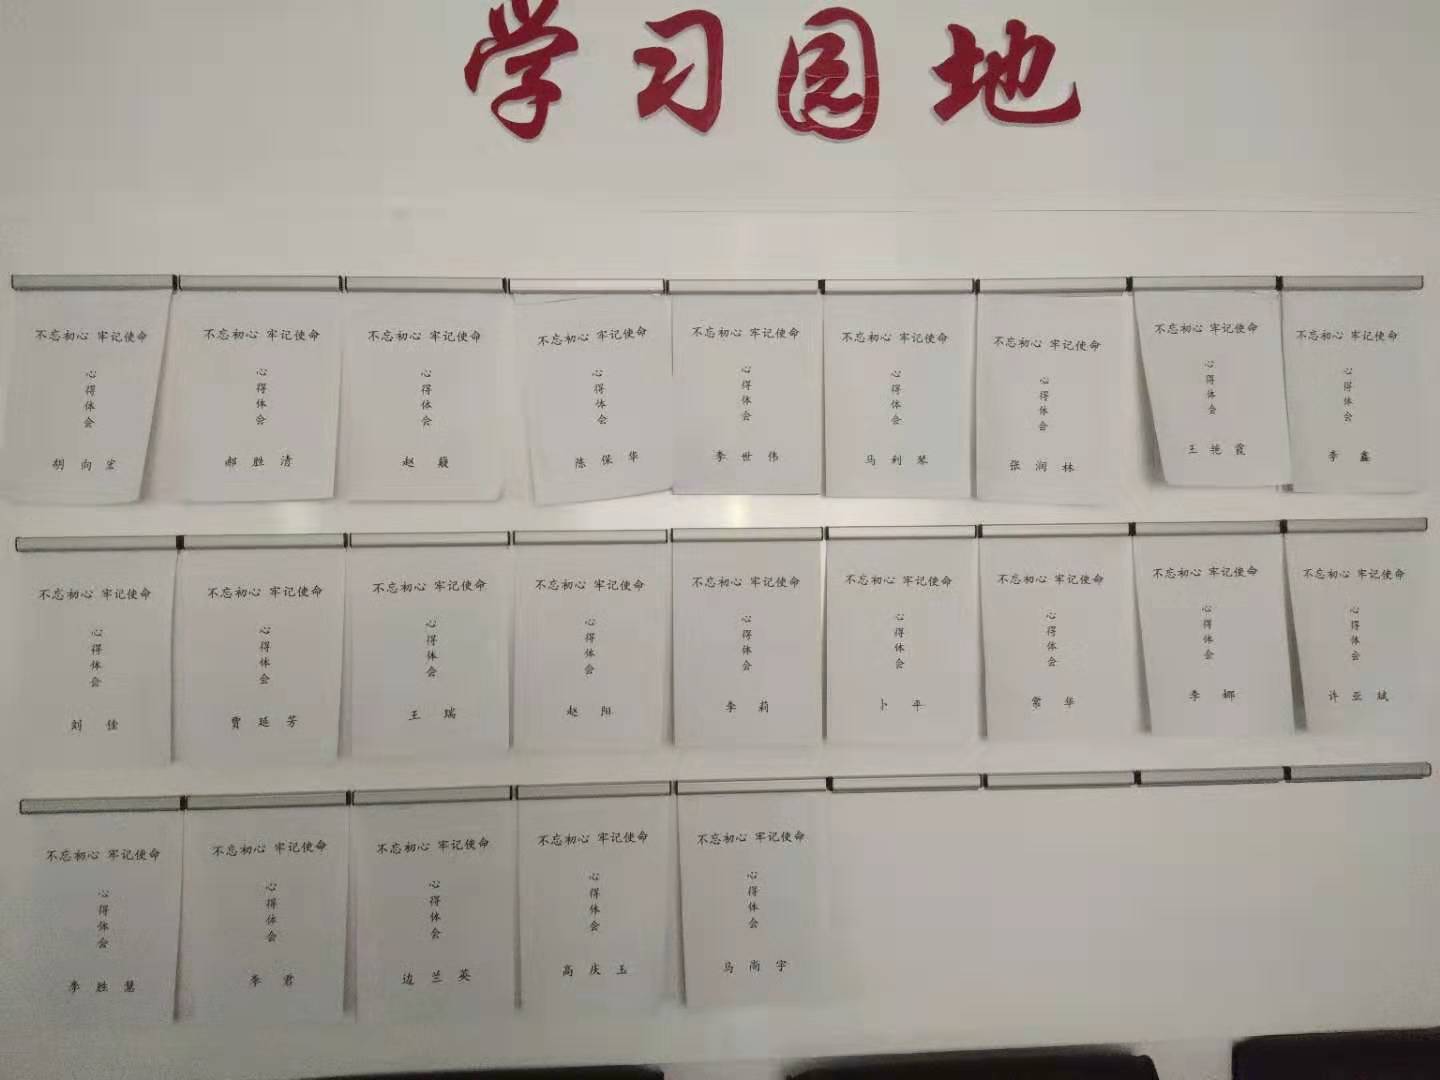 学习园地
不忘初心 牢记使命
心得体会
胡向宏
不忘初心 牢记使命
心得体会
郝胜清
不忘初心 牢记使命
心得体会
赵
不忘初心 牢记使命
心得体会
陈保华
不忘初心 牢记使命
心得体会
李世伟
不忘初心 牢记使命
心得体会
马利琴
不忘初心 牢记使命
心得体会
张润林
不忘初心 牢记使命
心得体会
王艳霞
不忘初心 牢记使命
心得体会
李鑫
不忘初心 牢记使命
心得体会
刘佳
不忘初心 牢记使命
心得体会
贾延芳
不忘初心 牢记使命
心得体会
王瑞
不忘初心 牢记使命
心得体会
赵阳
不忘初心 牢记使命
心得体会
李莉
不忘初心 牢记使命
心得体会
卜平
不忘初心 牢记使命
心得体会
常华
不忘初心 牢记使命
心得体会
李娜
不忘初心 牢记使命
心得体会
许亚斌
不忘初心 牢记使命
心得体会
李胜慧
不忘初心 牢记使命
心得体会
李君
不忘初心 牢记使命
心得体会
边兰英
不忘初心 牢记使命
心得体会
高庆玉
不忘初心 牢记使命
心得体会
马尚宇